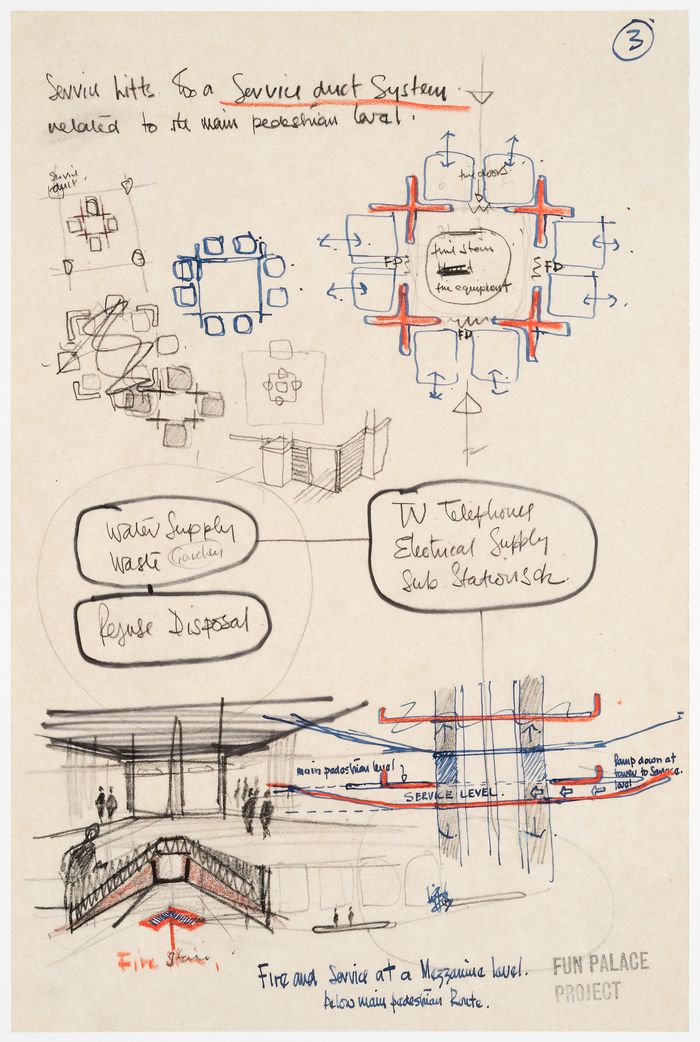 3
Service Lifts to a Service duct System
related to the main pedestrian level.
Service
duct.
fire doors
FD
fire stair
fire equipment
FD
FD
Water Supply
Waste Garchey
Refuse Disposal
TV Telephones
Electrical Supply
Sub Stations
main pedestrian level
SERVICE LEVEL.
Ramp down at
tower to Service
level
Fire Stair
Fire and Service at a Mezzanine level.
below main pedestrian Route.
FUN PALACE
PROJECT